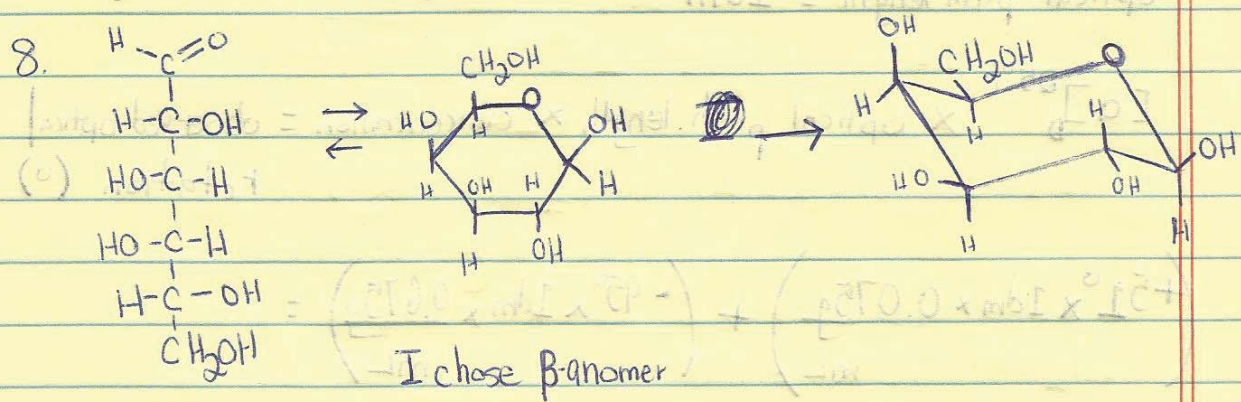 8.
H C=O
H-C-OH
HO-C-H
HO-C-H
H-C-OH
CH2OH
CH2OH
O
HO
H
OH
H
OH
H
H
H
OH
OH
CH2OH
O
H
H
H
HO
OH
OH
H
H
I chose β-anomer